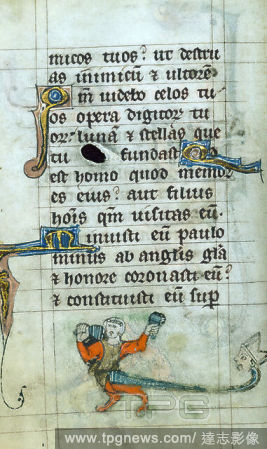 micos tuos? ut destru
as inimicū ⁊ ultorē
Qm̄ uidebo celos tu
os opera digitor tu
or. lunā ⁊ stellas que
tu fundasti Quid
est homo quod memor
es eius? aut filius
hoīs qm̄ uisitas eū.
Minuisti eū paulo
minus ab anglis glā
⁊ honore coronasti eū?
⁊ constituisti eū sup
TPG
www.tpgnews.com／達志影像